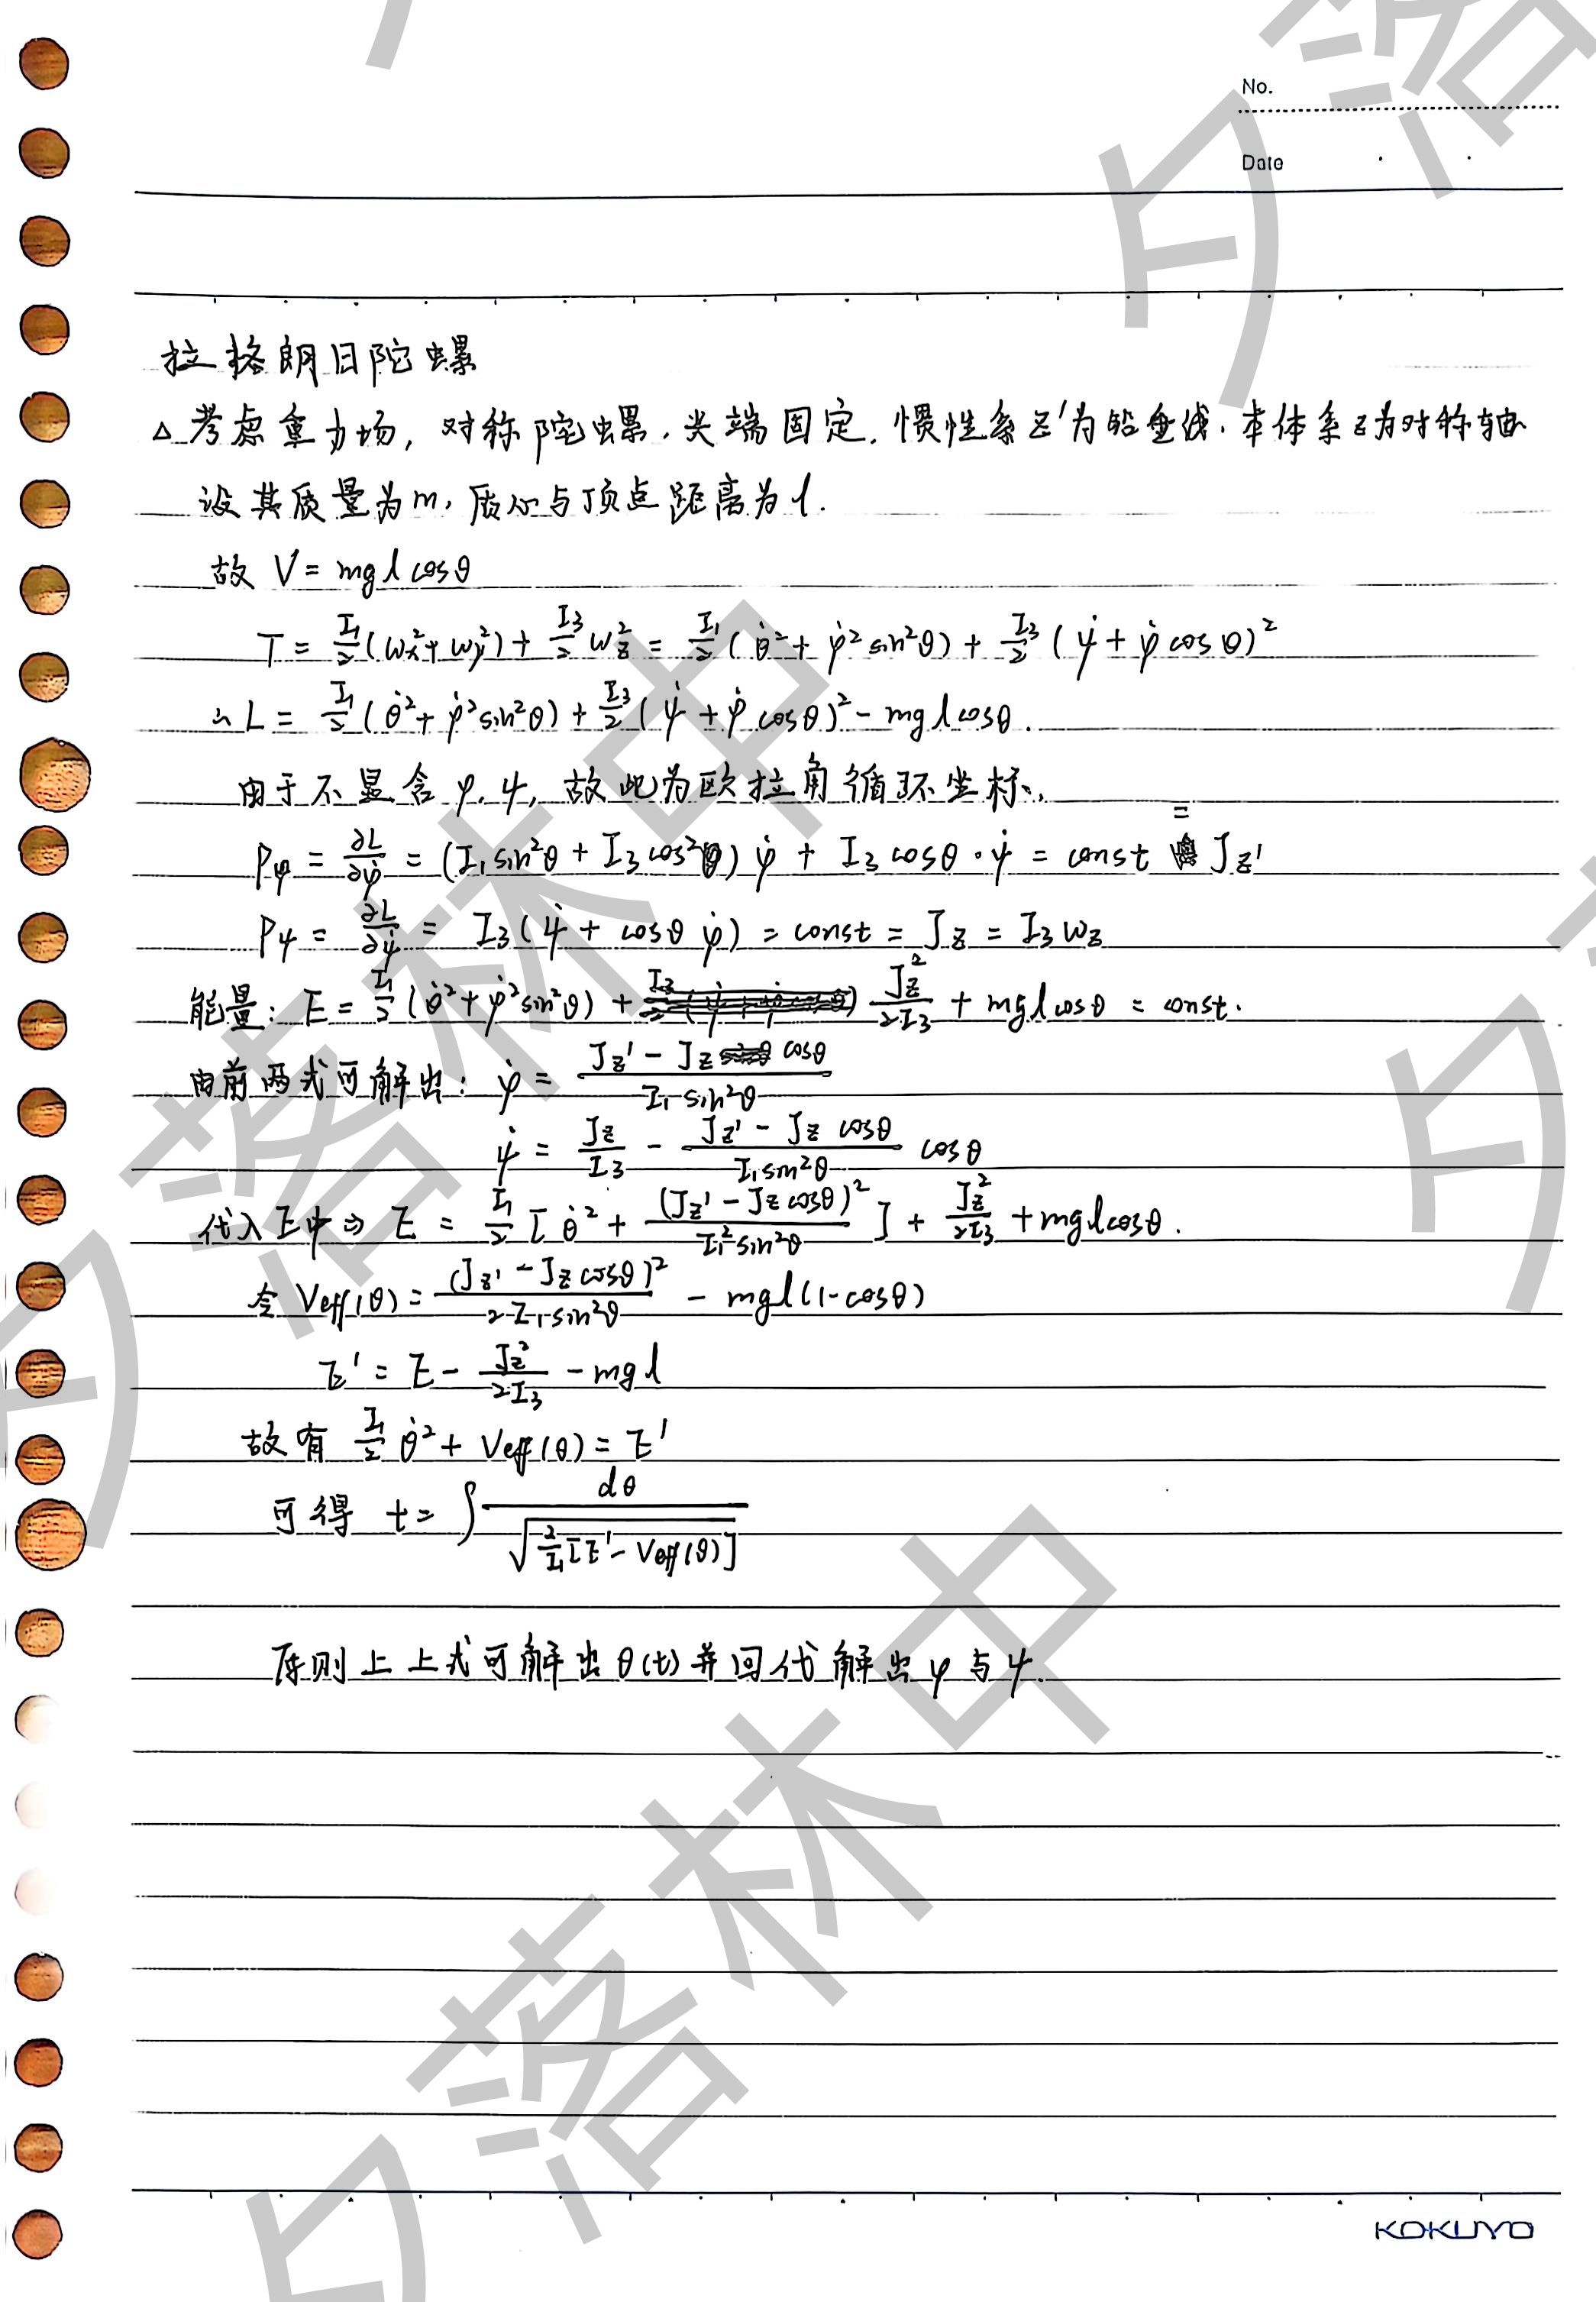 No.
Date
拉格朗日陀螺
△ 考虑重力场，对称陀螺，尖端固定，惯性系z'为铅垂线，本体系z为对称轴
设其质量为m，质心与顶点距离为l.
故 V = mgl cosθ
T = I₁/2 (ωx² + ωy²) + I₃/2 ωz² = I₁/2 (θ̇² + φ̇² sin²θ) + I₃/2 (ψ̇ + φ̇ cosθ)²
∴ L = I₁/2 (θ̇² + φ̇² sin²θ) + I₃/2 (ψ̇ + φ̇ cosθ)² - mgl cosθ.
由于不显含 φ, ψ, 故此为欧拉角循环坐标.
Pφ = ∂L/∂φ̇ = (I₁ sin²θ + I₃ cos²θ) φ̇ + I₃ cosθ · ψ̇ = const = Jz'
Pψ = ∂L/∂ψ̇ = I₃ (ψ̇ + cosθ φ̇) = const = Jz = I₃ ωz
能量: E = I₁/2 (θ̇² + φ̇² sin²θ) + Jz²/2I₃ + mgl cosθ = const.
由前两式可解出: φ̇ = (Jz' - Jz cosθ)/(I₁ sin²θ)
ψ̇ = Jz/I₃ - (Jz' - Jz cosθ)/(I₁ sin²θ) cosθ
代入E中 ⇒ E = I₁/2 [θ̇² + (Jz' - Jz cosθ)²/(I₁² sin²θ)] + Jz²/2I₃ + mgl cosθ.
令 Veff(θ) = (Jz' - Jz cosθ)²/(2I₁ sin²θ) - mgl(1-cosθ)
E' = E - Jz²/2I₃ - mgl
故有 I₁/2 θ̇² + Veff(θ) = E'
可得 t = ∫ dθ/√(2/I₁ [E' - Veff(θ)])
原则上上式可解出θ(t)并回代解出φ与ψ.
KOKUYO
夕落林中
夕落林中